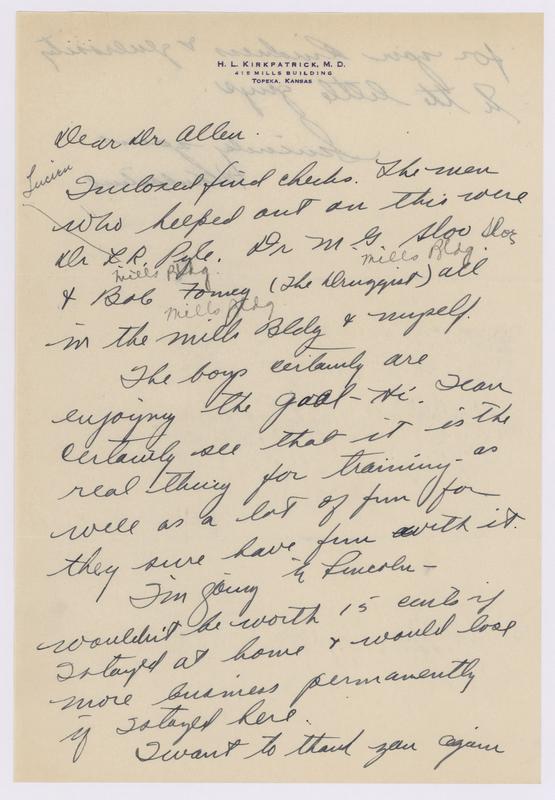 H. L. KIRKPATRICK, M. D.
415 MILLS BUILDING
TOPEKA, KANSAS
Dear Dr Allen.
Inclosed find checks. The men
Lucien
who helped out on this were
Dr L.R. Pyle. Dr M. G. Sloo
Mills Bldg. Mills Bldg.
& Bob Fomey (The Druggist) all
Mills Bldg
in the Mills Bldg & myself.
The boys certainly are
enjoying the goal-Hi. I can
certainly see that it is the
real thing for training - as
well as a lot of fun for
they sure have fun with it.
I'm going to Lincoln -
wouldn't be worth 15 cents if
I stayed at home & would lose
more business permanently
if I stayed here.
I want to thank you again
for your kindness & generosity
to the little guys.